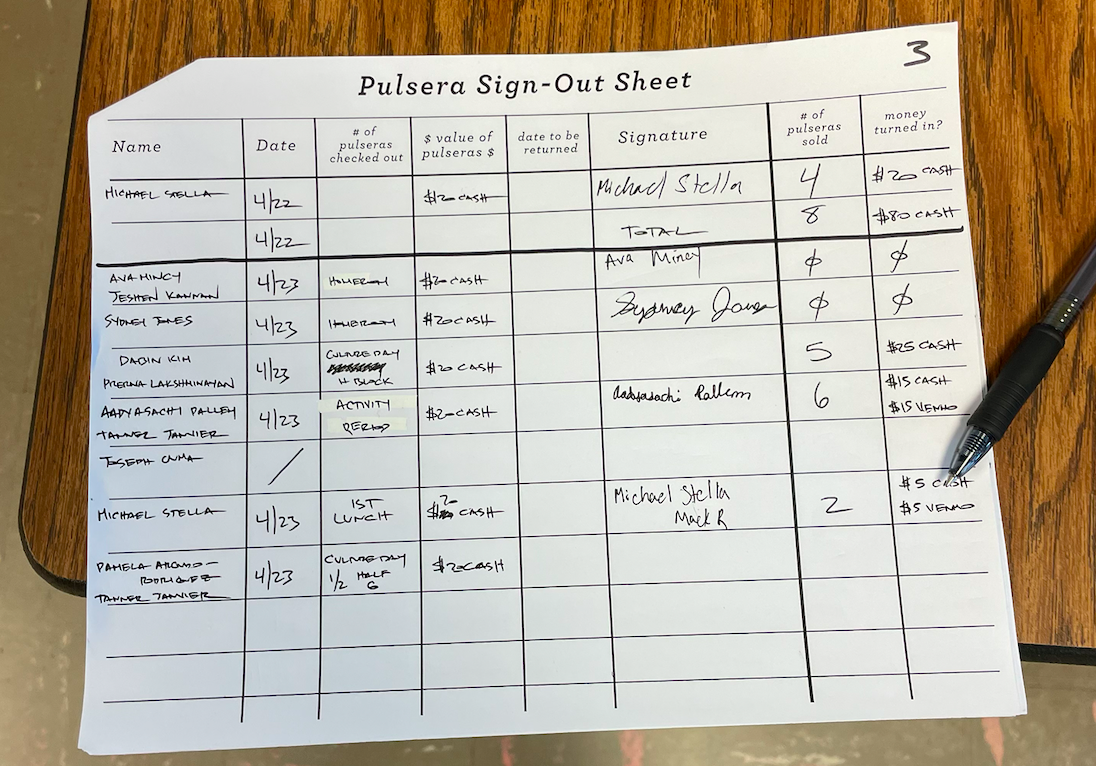 3
Pulsera Sign-Out Sheet
Name Date # of pulseras checked out $ value of pulseras $ date to be returned Signature # of pulseras sold money turned in?
MICHAEL STELLA 4/22 $20 CASH Michael Stella 4 $20 CASH
4/22 TOTAL 8 $80 CASH
AVA MINCY
JESHEN KANNAN 4/23 HOMEROOM $20 CASH Ava Mincy ϕ ϕ
SYDNEY JONES 4/23 HOMEROOM $20 CASH Sydney Jones ϕ ϕ
DABIN KIM
PRERNA LAKSHMINAYAN 4/23 CULTURE DAY
H BLOCK $20 CASH 5 $25 CASH
AADYASACHI PALLEM
TANNER TANNIER 4/23 ACTIVITY
PERIOD $20 CASH Aadyasachi Pallem 6 $15 CASH
$15 VENMO
JOSEPH /
MICHAEL STELLA 4/23 1ST
LUNCH $20 CASH Michael Stella
Mack R 2 $5 CASH
$5 VENMO
PAMELA
RODRIGUEZ
TANNER TANNIER 4/23 CULTURE DAY
1/2 HALF
G $20 CASH